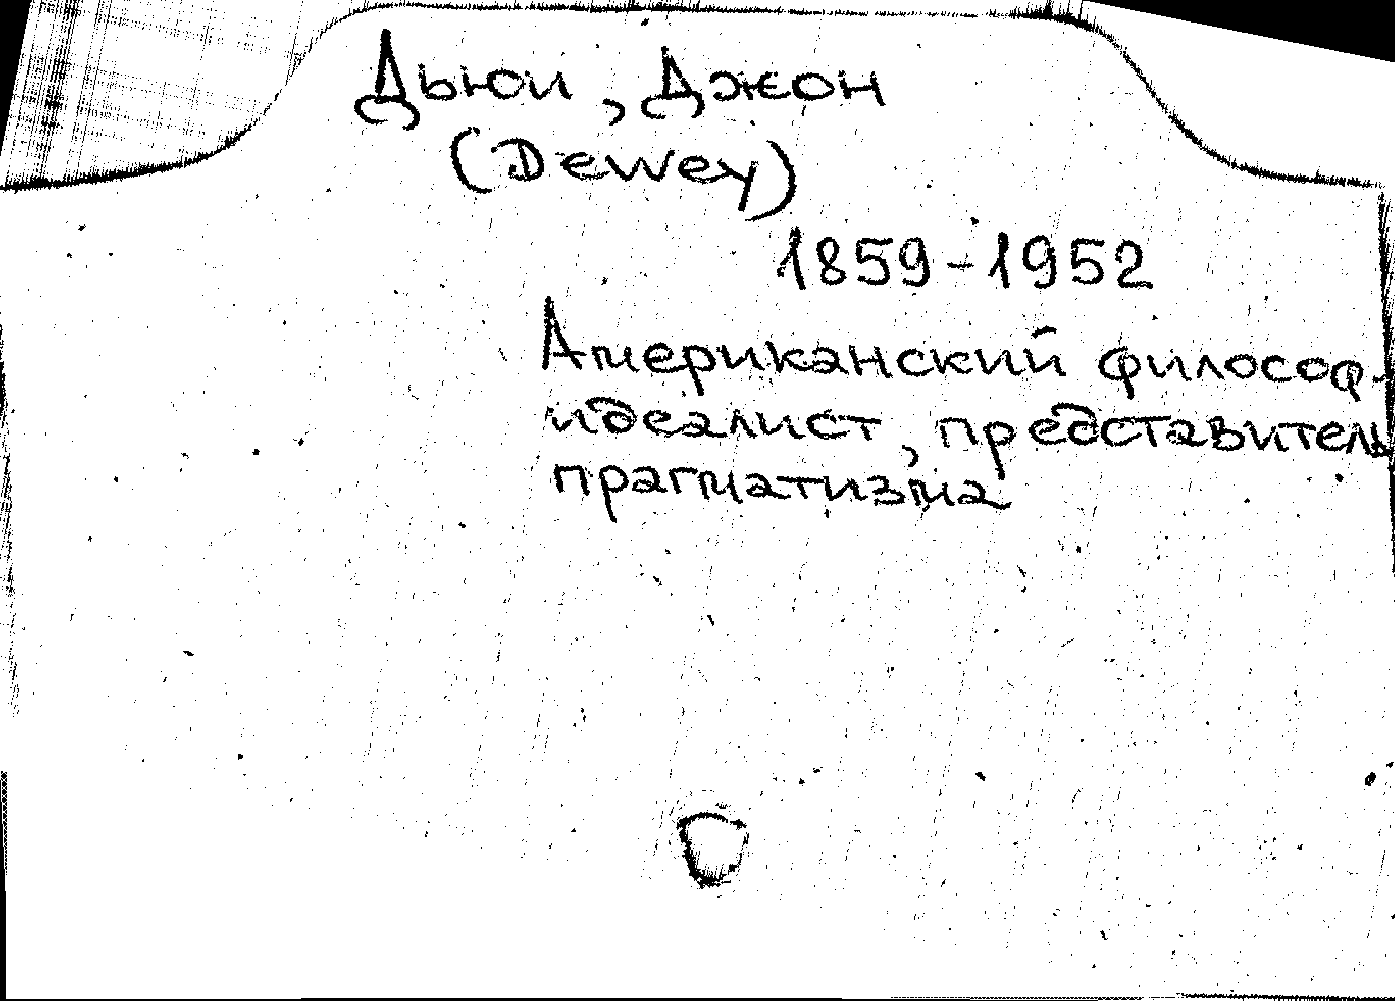 Дьюи, Джон
(Dewey)
1859-1952
Американский философ-
идеалист, представитель
прагматизма